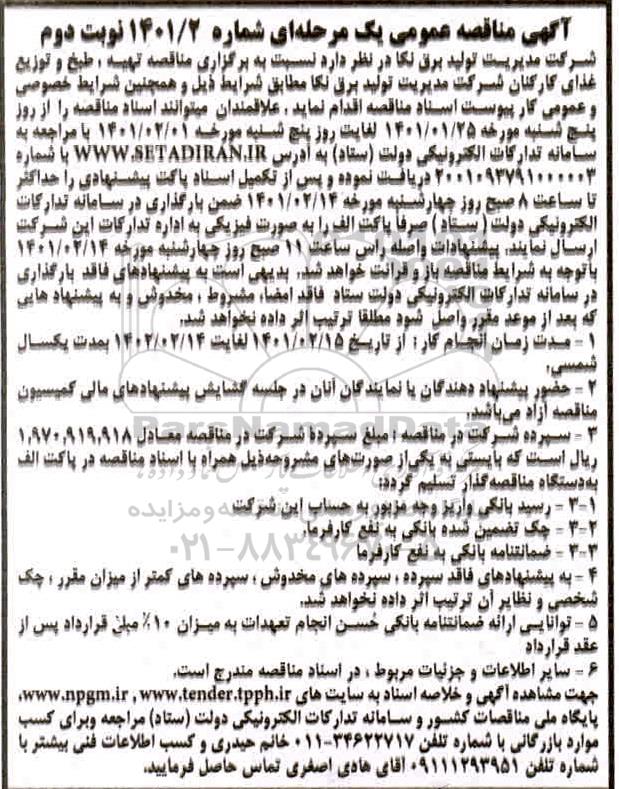 آگهی مناقصه عمومی یک مرحله‌ای شماره ۱۴۰۱/۲ نوبت دوم
شرکت مدیریت تولید برق نکا در نظر دارد نسبت به برگزاری مناقصه تهیه ، طبخ و توزیع
غذای کارکنان شرکت مدیریت تولید برق نکا مطابق شرایط ذیل و همچنین شرایط خصوصی
و عمومی کار پیوست اسناد مناقصه اقدام نماید . علاقمندان میتوانند اسناد مناقصه را از روز
پنج شنبه مورخه ۱۴۰۱/۰۱/۲۵ لغایت روز پنج شنبه مورخه ۱۴۰۱/۰۲/۰۱ با مراجعه به
سامانه تدارکات الکترونیکی دولت (ستاد) به آدرس WWW.SETADIRAN.IR با شماره
۲۰۰۱۰۹۳۷۹۱۰۰۰۰۰۳ دریافت نموده و پس از تکمیل اسناد پاکت پیشنهادی را حداکثر
تا ساعت ۸ صبح روز چهارشنبه مورخه ۱۴۰۱/۰۲/۱۴ ضمن بارگذاری در سامانه تدارکات
الکترونیکی دولت ( ستاد ) صرفا پاکت الف را به صورت فیزیکی به اداره تدارکات این شرکت
ارسال نمایند. پیشنهادات واصله راس ساعت ۱۱ صبح روز چهارشنبه مورخه ۱۴۰۱/۰۲/۱۴
باتوجه به شرایط مناقصه باز و قرائت خواهد شد. بدیهی است به پیشنهادهای فاقد بارگذاری
در سامانه تدارکات الکترونیکی دولت ستاد فاقد امضا، مشروط ، مخدوش و به پیشنهاد هایی
که بعد از موعد مقرر واصل شود مطلقا ترتیب اثر داده نخواهد شد.
۱ - مدت زمان انجام کار : از تاریخ ۱۴۰۱/۰۲/۱۵ لغایت ۱۴۰۲/۰۲/۱۴ بمدت یکسال
شمسی.
۲ - حضور پیشنهاد دهندگان یا نمایندگان آنان در جلسه گشایش پیشنهادهای مالی کمیسیون
مناقصه آزاد می‌باشد.
۳ - سپرده شرکت در مناقصه : مبلغ سپرده شرکت در مناقصه معادل ۱,۹۷۰,۹۱۹,۹۱۸
ریال است که بایستی به یکی از صورت‌های مشروحه ذیل همراه با اسناد مناقصه در پاکت الف
به‌دستگاه مناقصه‌گذار تسلیم گردد:
۳-۱ - رسید بانکی واریز وجه مزبور به حساب این شرکت
۳-۲ - چک تضمین شده بانکی به نفع کارفرما.
۳-۳ - ضمانتنامه بانکی به نفع کارفرما
۴ - به پیشنهادهای فاقد سپرده ، سپرده های مخدوش ، سپرده های کمتر از میزان مقرر ، چک
شخصی و نظایر آن ترتیب اثر داده نخواهد شد.
۵ - توانایی ارائه ضمانتنامه بانکی حُسن انجام تعهدات به میزان ۱۰٪ مبلغ قرارداد پس از
عقد قرارداد
۶ - سایر اطلاعات و جزئیات مربوط ، در اسناد مناقصه مندرج است.
جهت مشاهده آگهی و خلاصه اسناد به سایت های www.npgm.ir , www.tender.tpph.ir،
پایگاه ملی مناقصات کشور و سامانه تدارکات الکترونیکی دولت (ستاد) مراجعه وبرای کسب
موارد بازرگانی با شماره تلفن ۳۴۶۲۲۷۱۷-۰۱۱ خانم حیدری و کسب اطلاعات فنی بیشتر با
شماره تلفن ۰۹۱۱۱۲۹۳۹۵۱ آقای هادی اصغری تماس حاصل فرمایید.
ParsNamadData